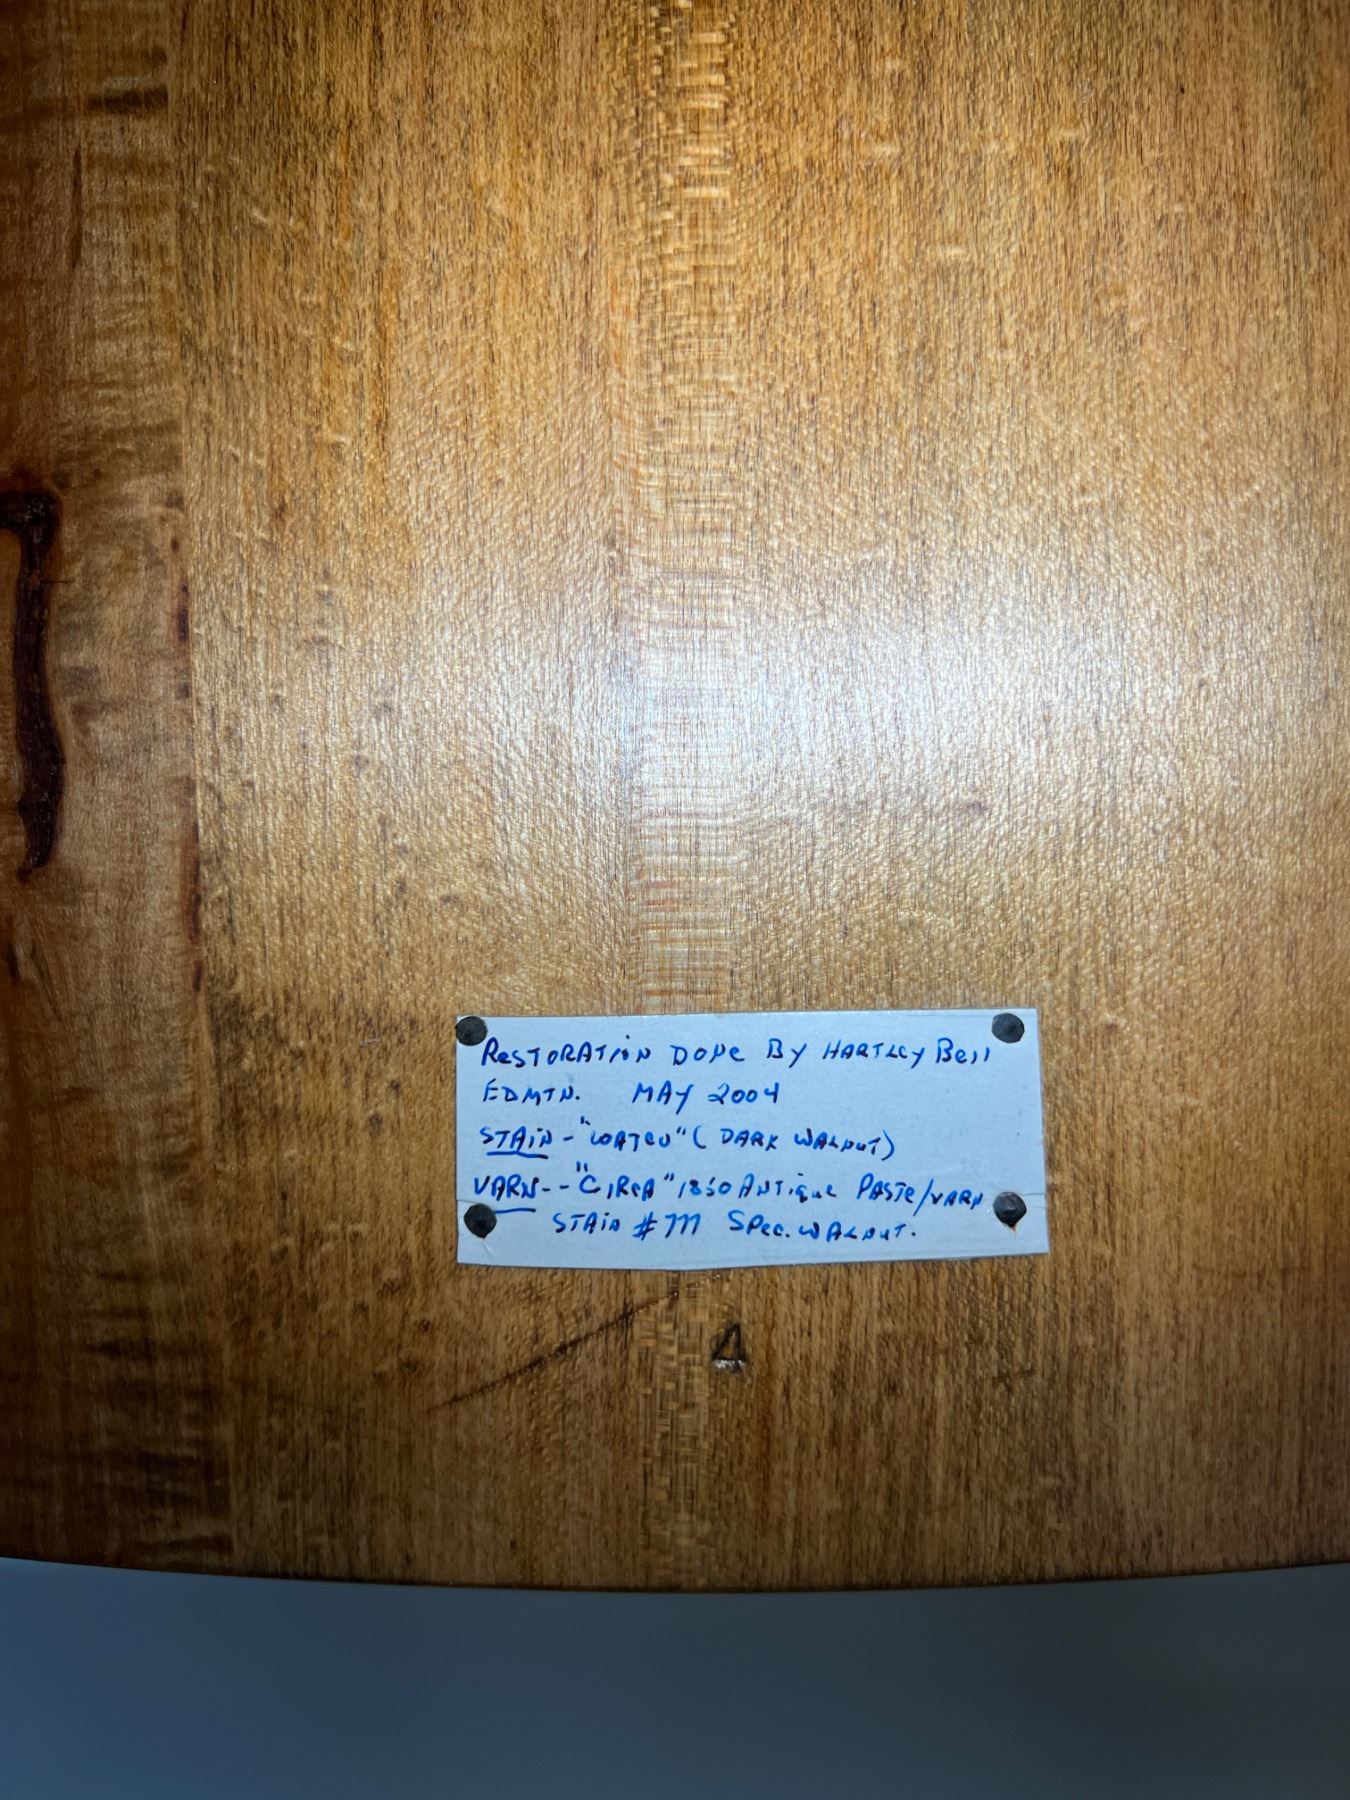 RESTORATION DONE BY HARTLEY BELL
EDMTN. MAY 2004
STAIN - "WATCO" (DARK WALNUT)
VARN-- "CIRCA" 1850 ANTIQUE PASTE/VARN
STAIN #777 SPEC. WALNUT.
4